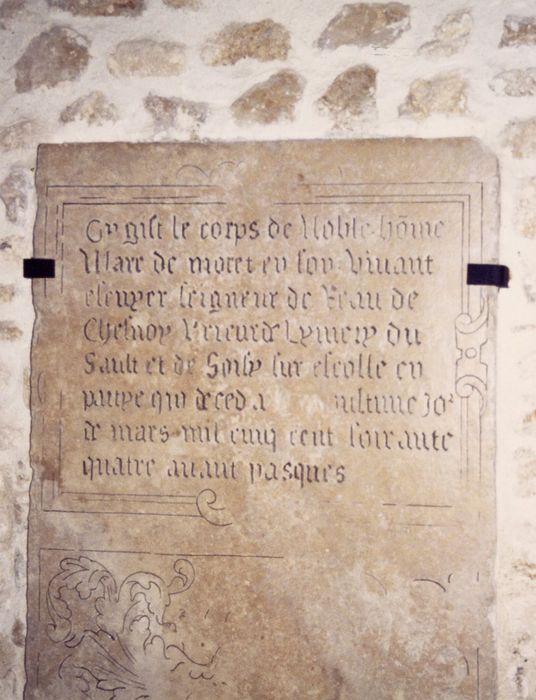 Cy gist le corps de Noble hōme
Marc de moret en son vivant
escuyer seigneur de Veau de
Chesnoy Lymery du
Sault et de Soisy sur escolle en
qui deced a
de mars mil cinq cent soixante
quatre avant pasques